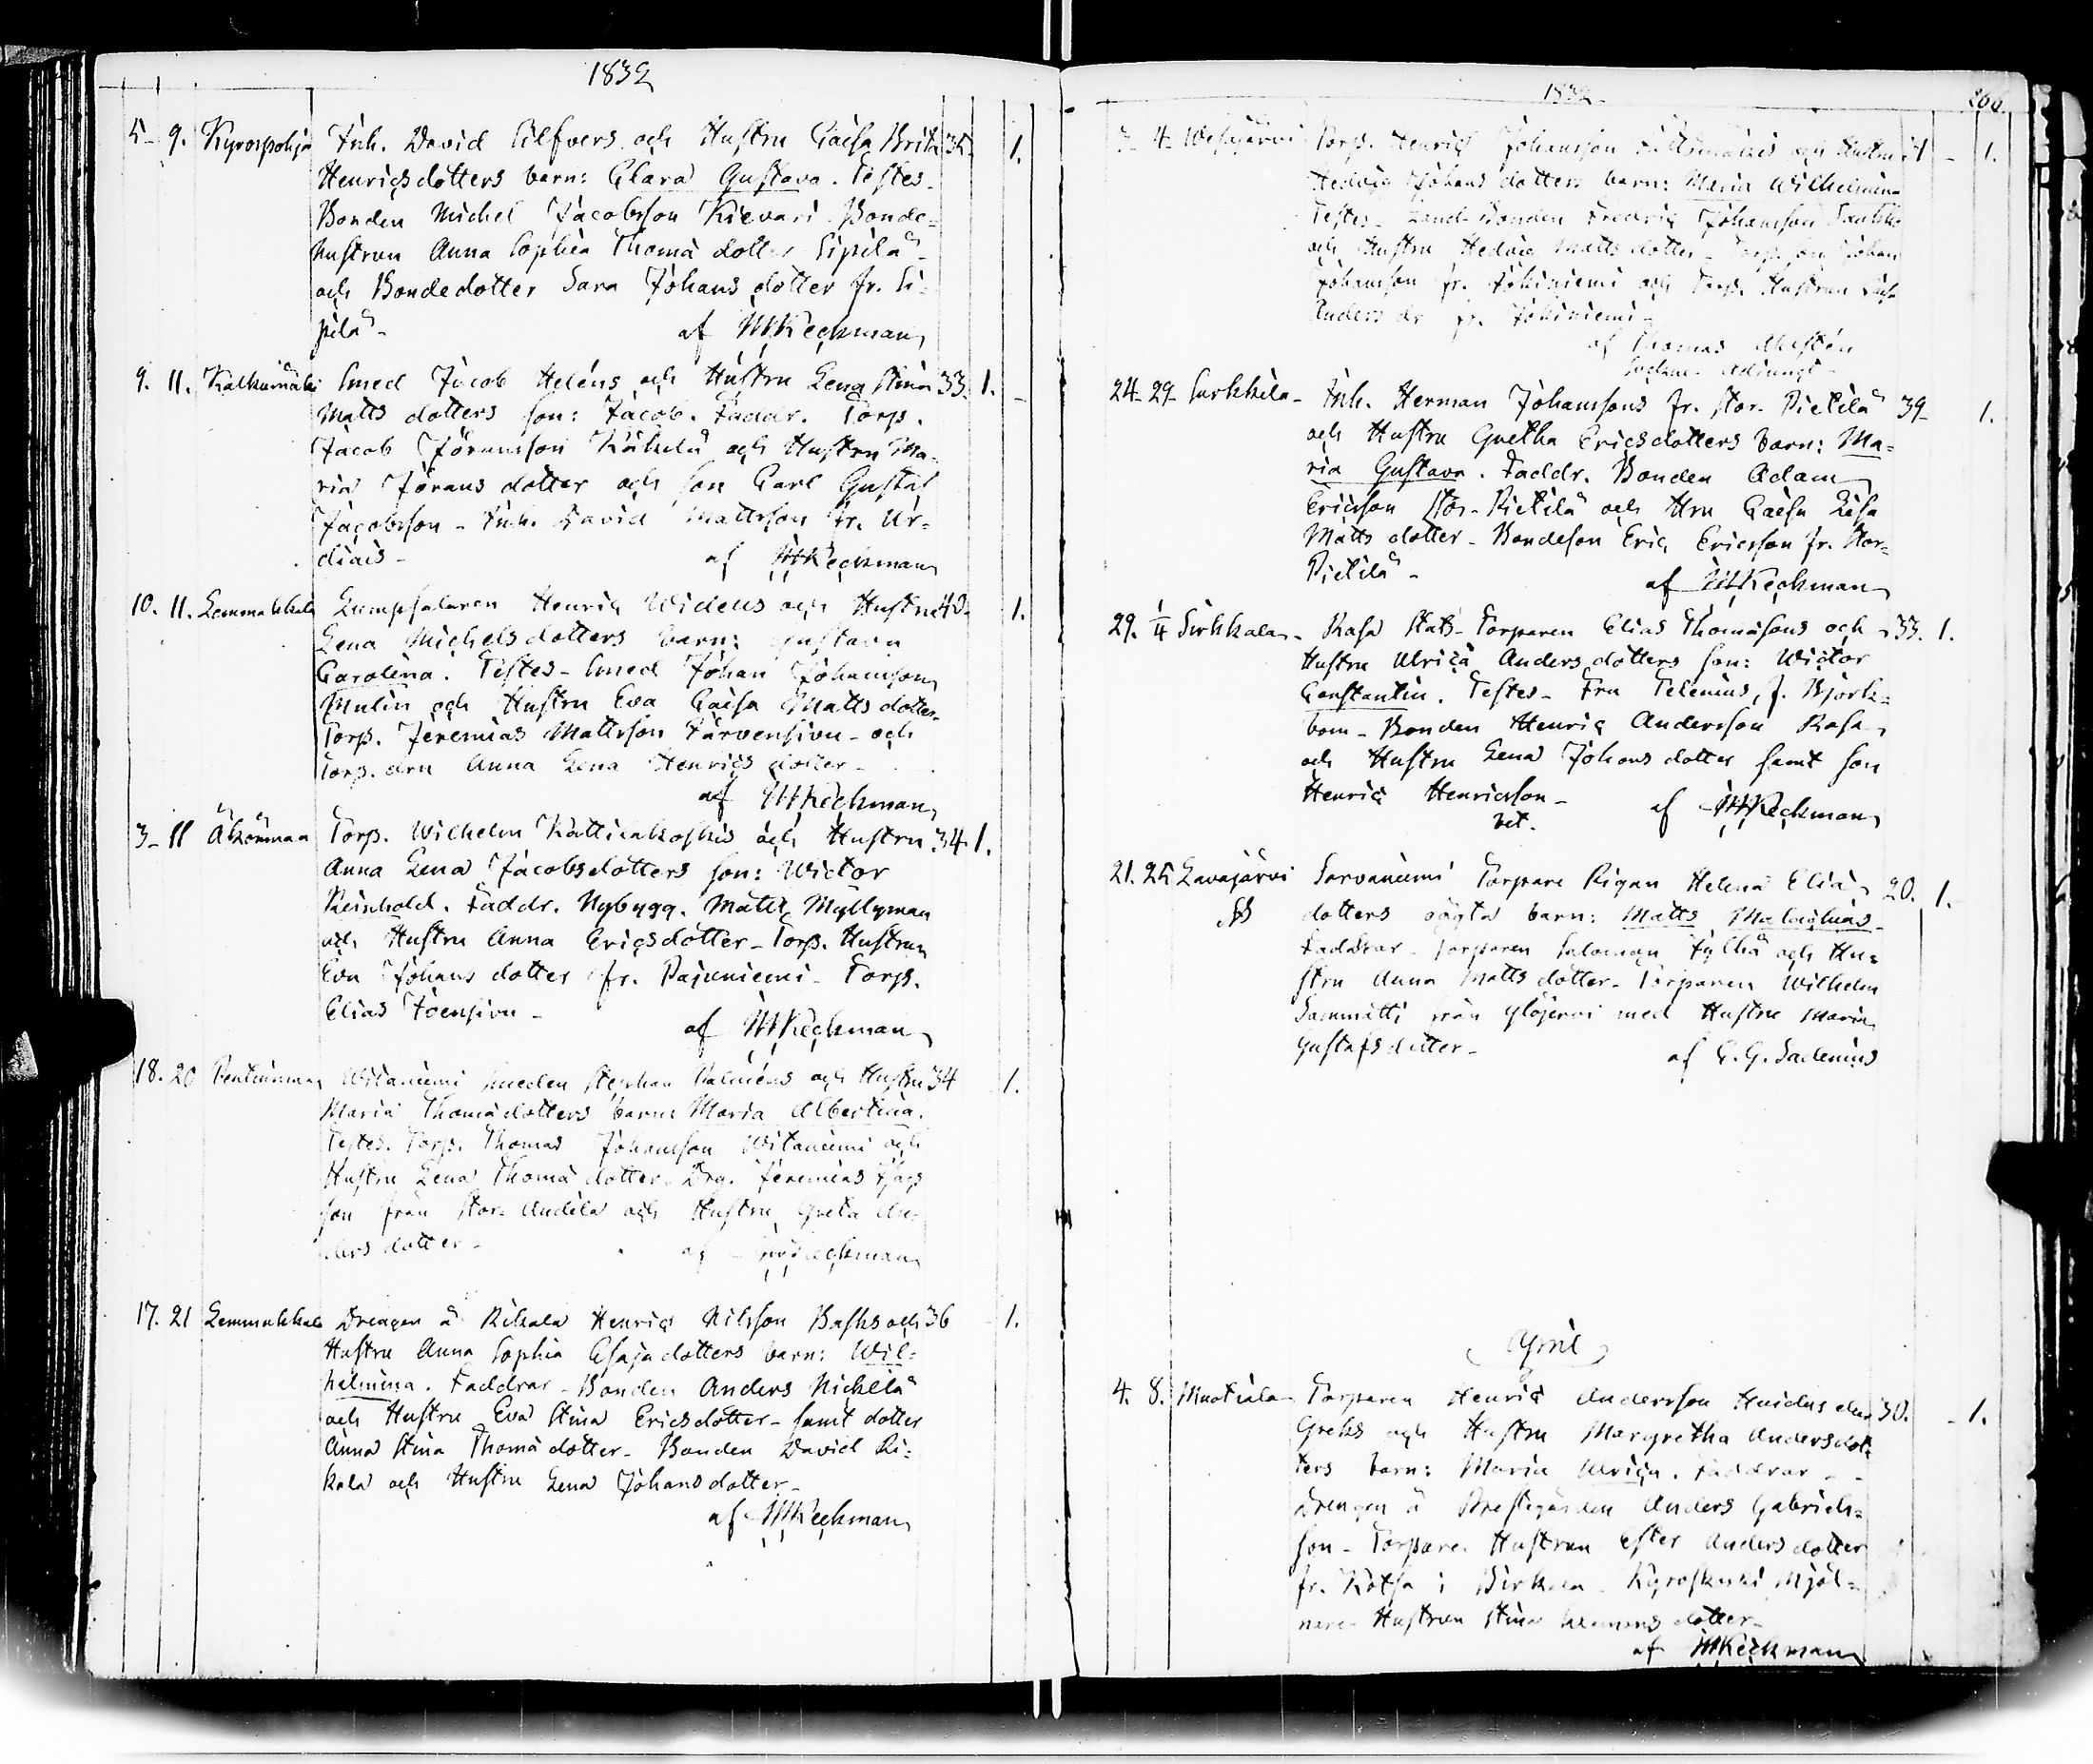 1832
5- 9. Kyrospohja Inh. David Silfvers och Hustru Caisa Brita 35- 1.
Henriçsdotters barn: Clara Gustava. Testes-
Bonden Michel Jacobsson Kiewari- Bonde-
hustrun Anna Sophia Thomä dotter Sipilä-
och Bondedotter Sara Johans dotter fr. Si-
pilä- af MKeckman
9. 11. Smed Jacob Heléns och Hustru Lena Stina 33. 1. -
Matts dotters son: Jacob. Faddr. Torp.
Jacob Jöransson och Hustru Ma-
ria Jörans dotter och son Carl Gustaf
Jacobsson- Inh. David Mattsson fr. Ur-
diais- af MKeckman
10. 11. Lemmakkala Henriç Widens och Hustru 40- 1.
Lena Michelsdotters barn: Gustava
Carolina. Testes- Smed Johan Johansson
Mulin och Hustru Eva Caisa Matts dotter-
Torp. Jeremias Mattsson Järvensivu- och
Torp. drn Anna Lena Henriçs dotter-
af MKeckman
3- 11 Torp. Wilhelm Kattilakoskis och Hustru 34. 1.
Anna Lena Jacobsdotters son: Wictor
Reinhold. Faddr. Nybygg. Matts Myllymaa
och Hustru Anna Eriçsdotter- Torp. Hustrun
Eva Johans dotter fr. Pajuniemi- Torp.
Elias Joensivu-
af MKeckman
18. 20 Smeden Stephan och Hustru 34 1.
Maria Thomädotters barn: Maria Albertina.
Testes. Torp. Thomas Johansson och
Hustru Lena Thomä dotter- Drg. Jeremias
son från Stor- och Hustru Greta An-
ders dotter- af MKeckman
17. 21 Lemmakkala Drengen å Rikala Henriç Nilsson Basks och 36 1.
Hustru Anna Sophia Esajædotters barn: Wil-
helmina. Faddrar- Bonden Anders Nickilä
och Hustru Eva Stina Ericsdotter- samt dotter
Anna Stina Thomä dotter- Bonden David Ri-
kala och Hustru Lena Johans dotter-
af MKeckman
1832- 266.
3- 4- Wesajärvi Torp. Henriç Johansson och Hustru - 1.
Hedvig Johans dotters barn: Maria Wilhelmina
Testes- Land-Bonden Fredriç Johansson
och Hustru Hedvig Matts dotter- Torp. son Johan
Johansson fr. Jokiniemi och Torp. Hustrun
Anders dr fr. Jokiniemi-
af Thomas
Adjungt-
24- 29- Surkkila- Inh. Herman Johanssons fr. Stor- Pietilä 39- 1.
och Hustru Gretha Ericsdotters barn: Ma-
ria Gustava. Faddr. Bonden Adam
Ericsson Stor- Pietilä och Hru Caisa Lisa
Matts dotter- Bondeson Eriç Ericsson fr. Stor-
Pietilä- af MKeckman
29. 1/4 Sirkkala- Rasa Kats- Torparen Elias Thomäsons och 33. 1.
Hustru Ulriça Anders dotters son: Wictor
Constantin. Testes- Fru Telenius, f. Björk-
bom- Bonden Henriç Andersson Rasa
och Hustru Lena Johans dotter samt son
Henriç Henricsson- af MKeckman
21. 25 Lavajärvi Sarvaniemi Torpare Pigan Helena Eliä 20. 1.
dotters oägta barn: Matts Malachias-
Faddrar- Torparen Salomon och Hu-
stru Anna Matts dotter- Torparen Wilhelm
Sammatti från Ylöjervi med Hustru Maria
Gustafs dotter- af G. G. Sadenius
April
4. 8. Muotiala- Torparen Henriç Andersson eller 30. - 1.
Greks och Hustru Margretha Andersdot-
ters barn: Maria Ulriça. Faddrar- -
Drengen å Prestgården Anders Gabriels-
son- Torpare Hustrun Ester Anders dotter
fr. i Birkala- Kyroskoski Mjöl-
nare- Hustrun Stina dotter-
af MKeckman